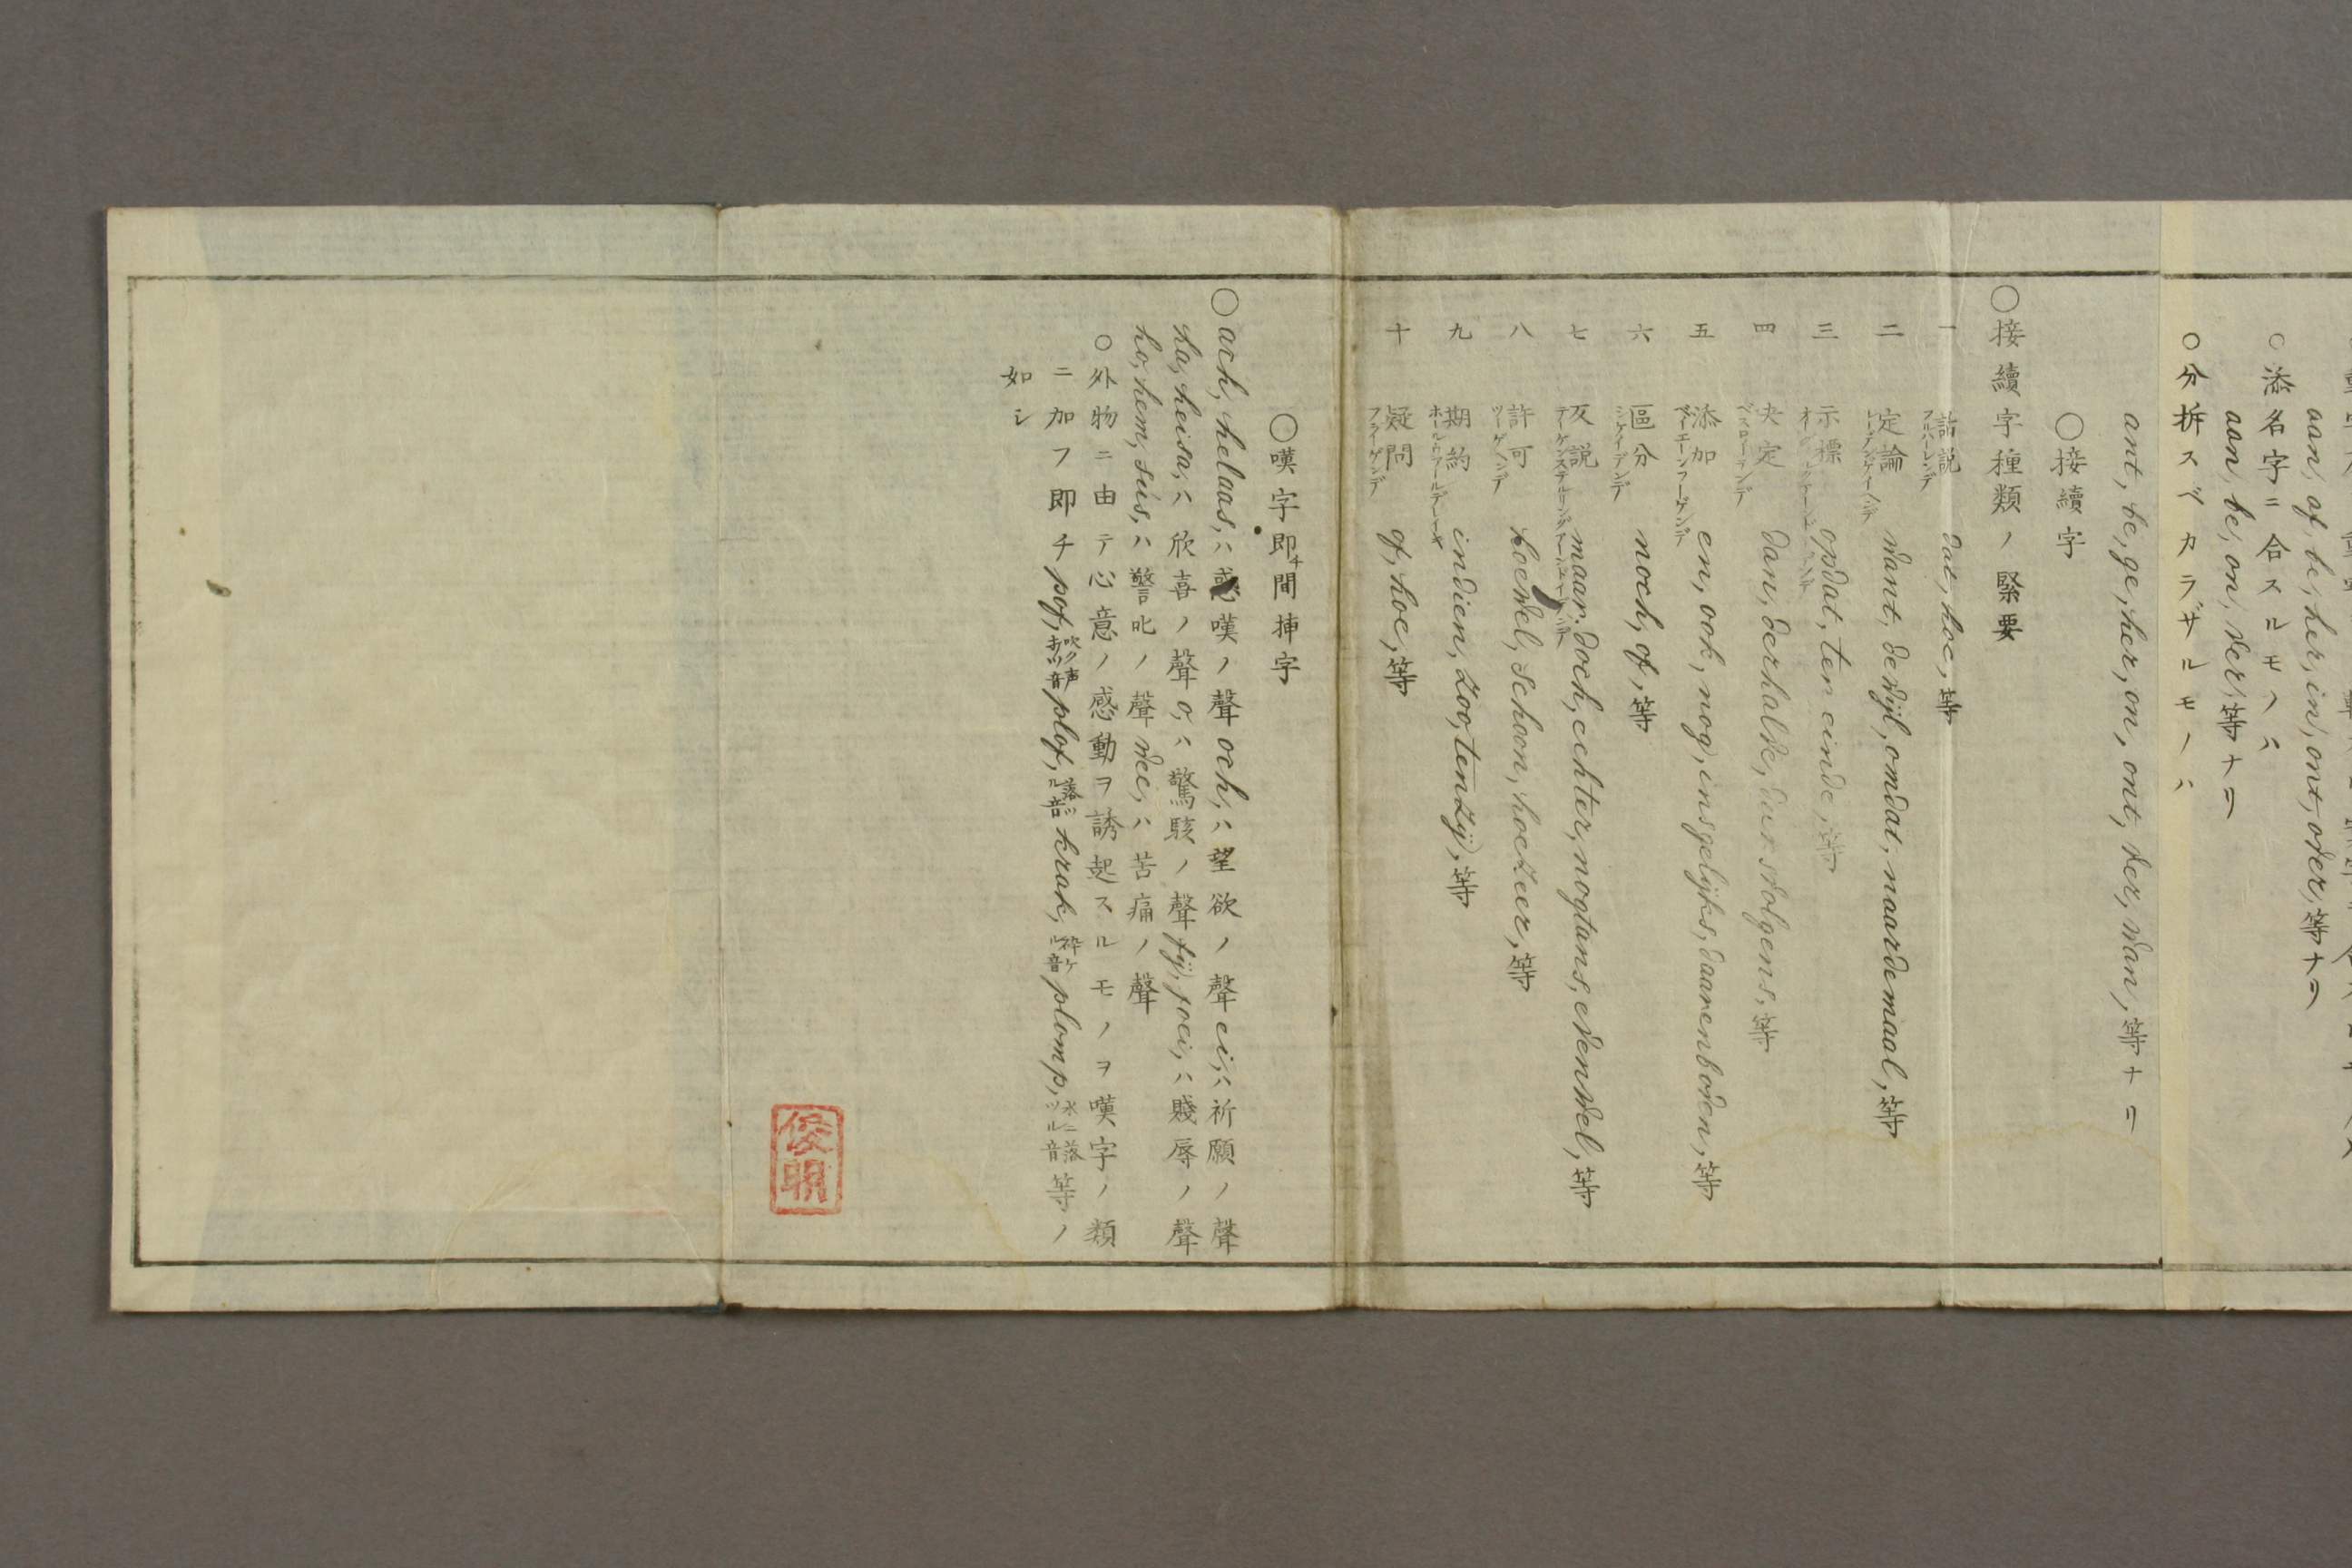 aan, af, be, her, in, ont, over, 等ナリ
○添名字ニ合スルモノハ
aan, be, on, ver, 等ナリ
○分拆スベカラザルモノハ
ant, be, ge, her, on, ont, ver, wan, 等ナリ
○接續字
○接續字種類ノ緊要
一 詁説 フルハーレンデ dat, hoe, 等
二 定論 want, dewijl, omdat, naardemaal, 等
三 示標 opdat, ten einde, 等
四 决定 ベスローテンデ dan, derhalve, dus volgens, 等
五 添加 en, ook, nog, insgelijks, daarenboven, 等
六 區分 シケイデンデ noch, of, 等
七 反説 maar, doch, echter, nogtans, evenwel, 等
八 許可 ツーゲーンデ hoewel, schoon, hoezeer, 等
九 期約 indien, zoo, tenzij, 等
十 疑問 フラーゲンデ of, hoe, 等
○嘆字即チ間挿字
○ach, helaas, ハ感嘆ノ聲och, ハ望欲ノ聲ei, ハ祈願ノ聲
ha, heisa, ハ欣喜ノ聲o, ハ驚駭ノ聲fij, foei, ハ賤辱ノ聲
ho, hem, sús, ハ警𠮟ノ聲wee, ハ苦痛ノ聲
○外物ニ由テ心意ノ感動ヲ誘起スルモノヲ嘆字ノ類
ニ加フ即チpof, 吹ク声 plof, 落ツル音 krak, 砕ケル音 plomp, 水ニ落ツル音 等ノ
如シ